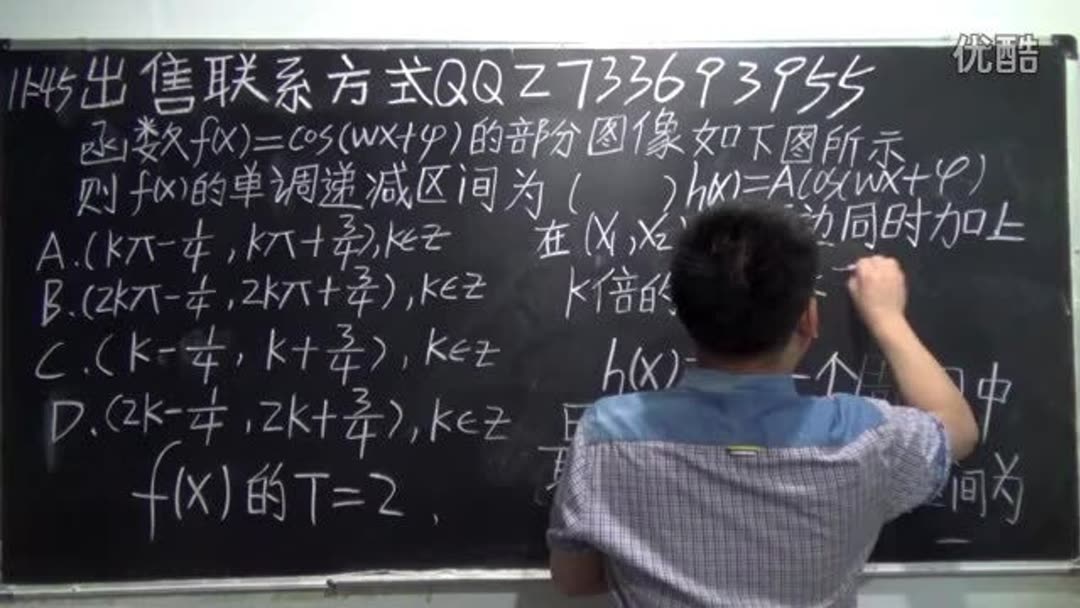 优酷
11:45出售联系方式QQ2733693955
函数f(x)=cos(wx+φ)的部分图像如下图所示
则f(x)的单调递减区间为(　　)
h(x)=Acos(wx+φ)
A.(kπ-1/4,kπ+3/4),k∈z
B.(2kπ-1/4,2kπ+3/4),k∈z
C.(k-1/4,k+3/4),k∈z
D.(2k-1/4,2k+3/4),k∈z
f(x)的T=2,
在(x₁,x₂) 边同时加上
k倍的
h(x) 一个 中
间为